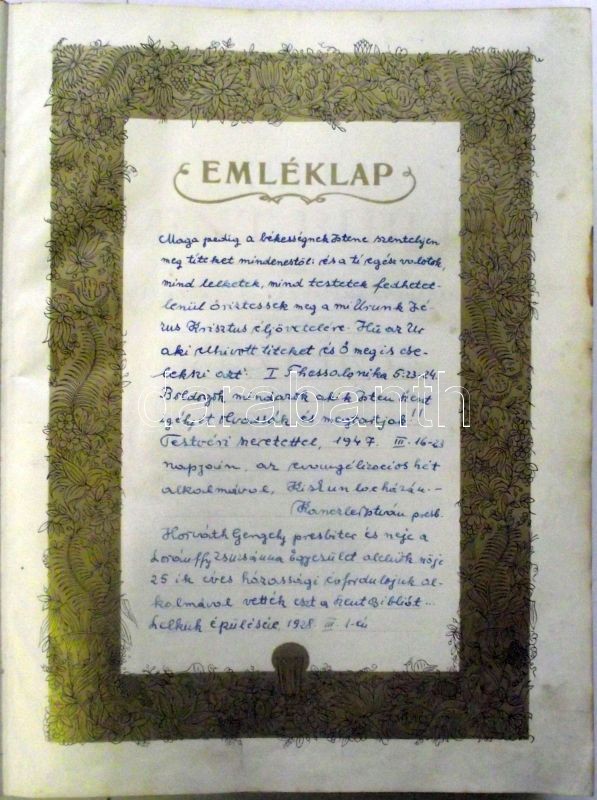 EMLÉKLAP
Maga pedig a békességnek Istene szenteljen
meg titeket mindenestől: és a ti egész valótok,
mind lelketek, mind testetek fedhetet-
lenül őriztessék meg a mi Urunk Jé-
zus Krisztus eljövetelére. Hű az Úr
aki elhívott titeket és Ő meg is cse-
lekszi azt: I Thessalonika 5:23-24.
Boldogok mindazok akik Isten szent
igéjét olvassák és megtartják!!
Testvéri szeretettel, 1947. III. 16-23
napjain, az evangélizációs hét
alkalmával, Kiskunlacházán.-
Kanczler István presb.
Horváth Gergely presbiter és neje a
Lorántffy Zsuzsánna Egyesület alelnök nője
25 ik éves házassági évfordulójuk al-
kalmával vették ezt a szent Bibliát...
lelkük épülésére 1928 III. 1-én
darabanth